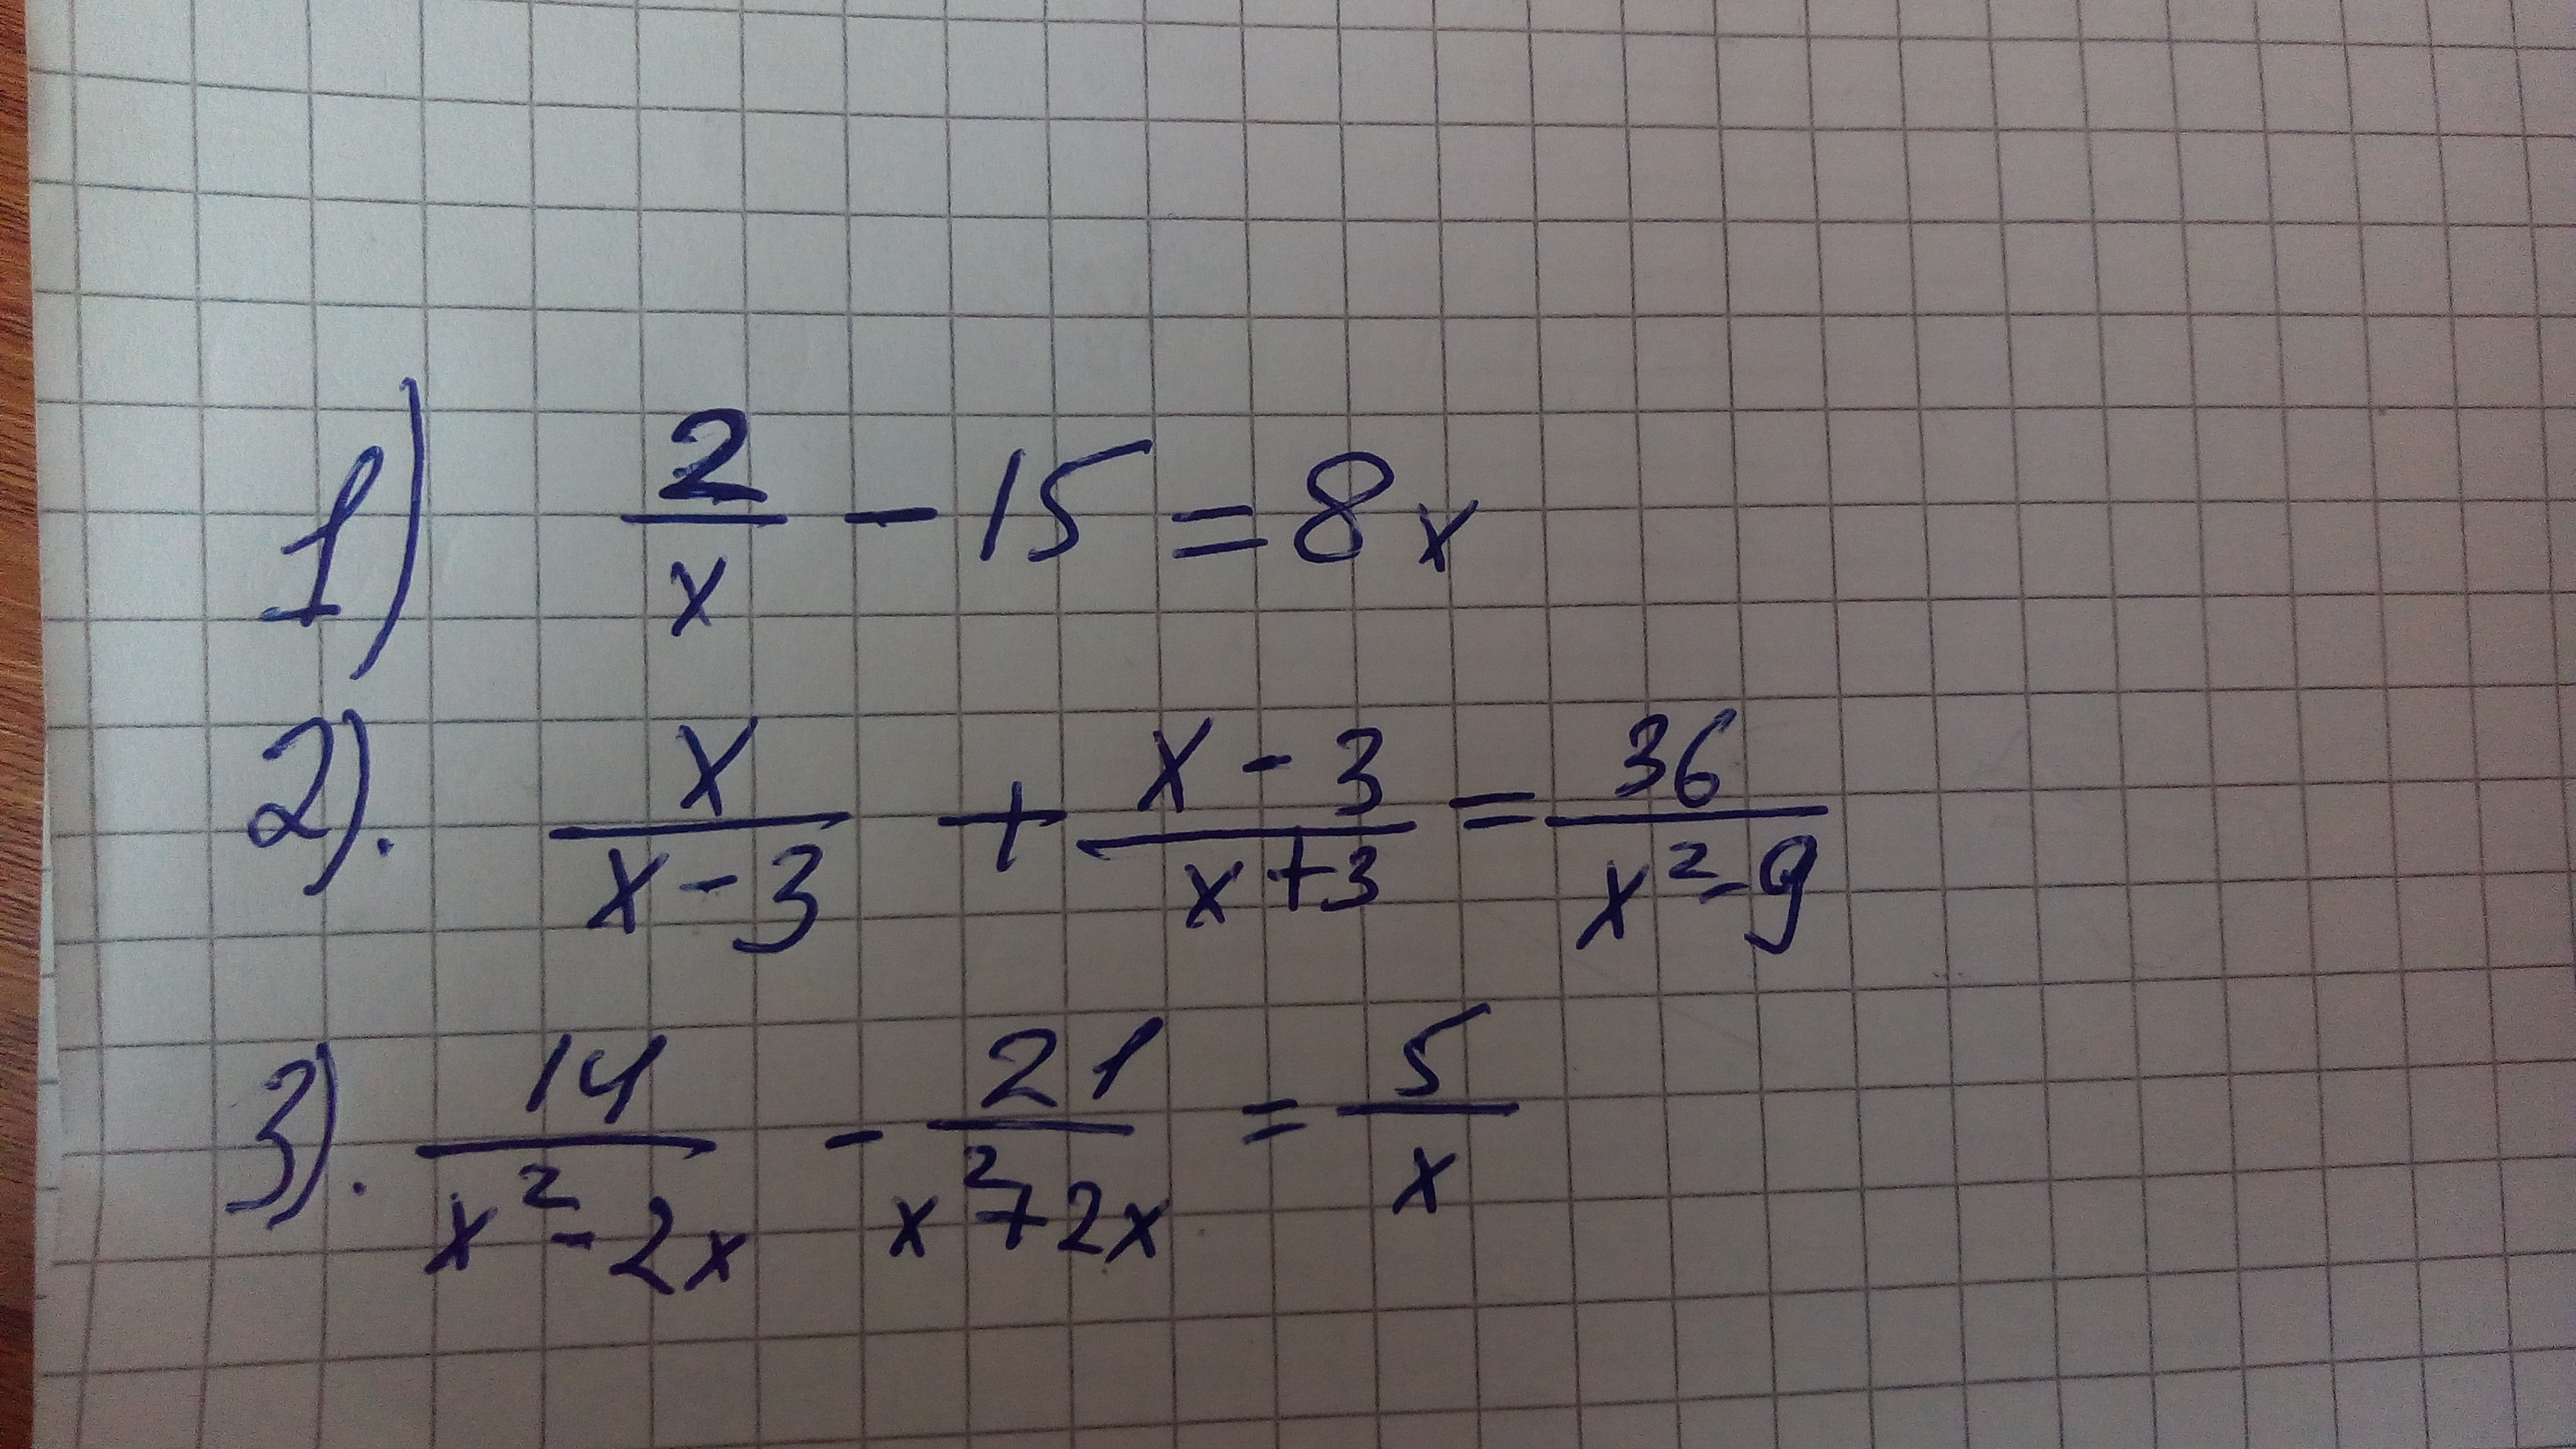 1) 2/x - 15 = 8x
2). x/(x-3) + (x-3)/(x+3) = 36/(x²-9)
3). 14/(x²-2x) - 21/(x²+2x) = 5/x